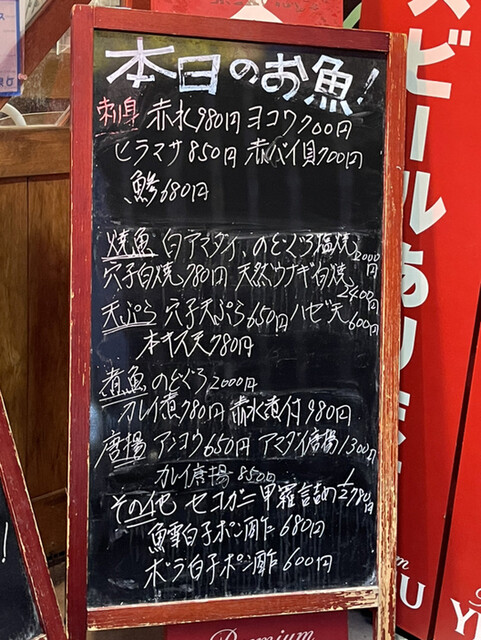 本日のお魚!
刺身 赤水980円 ヨコワ700円
ヒラマサ850円 赤バイ貝700円
鯵680円
焼魚 白アマダイ、のどぐろ塩焼2000円
穴子白焼780円 天然ウナギ白焼2400円
天ぷら 穴子天ぷら650円 ハゼ天600円
本キス天780円
煮魚 のどぐろ2000円
カレイ煮780円 赤水煮付980円
唐揚 アンコウ650円 アマダイ唐揚1300円
カレイ唐揚850円
その他 セコガニ甲羅詰め1/2 780円
魚雲白子ポン酢680円
ボラ白子ポン酢600円
Premium
スビールあります